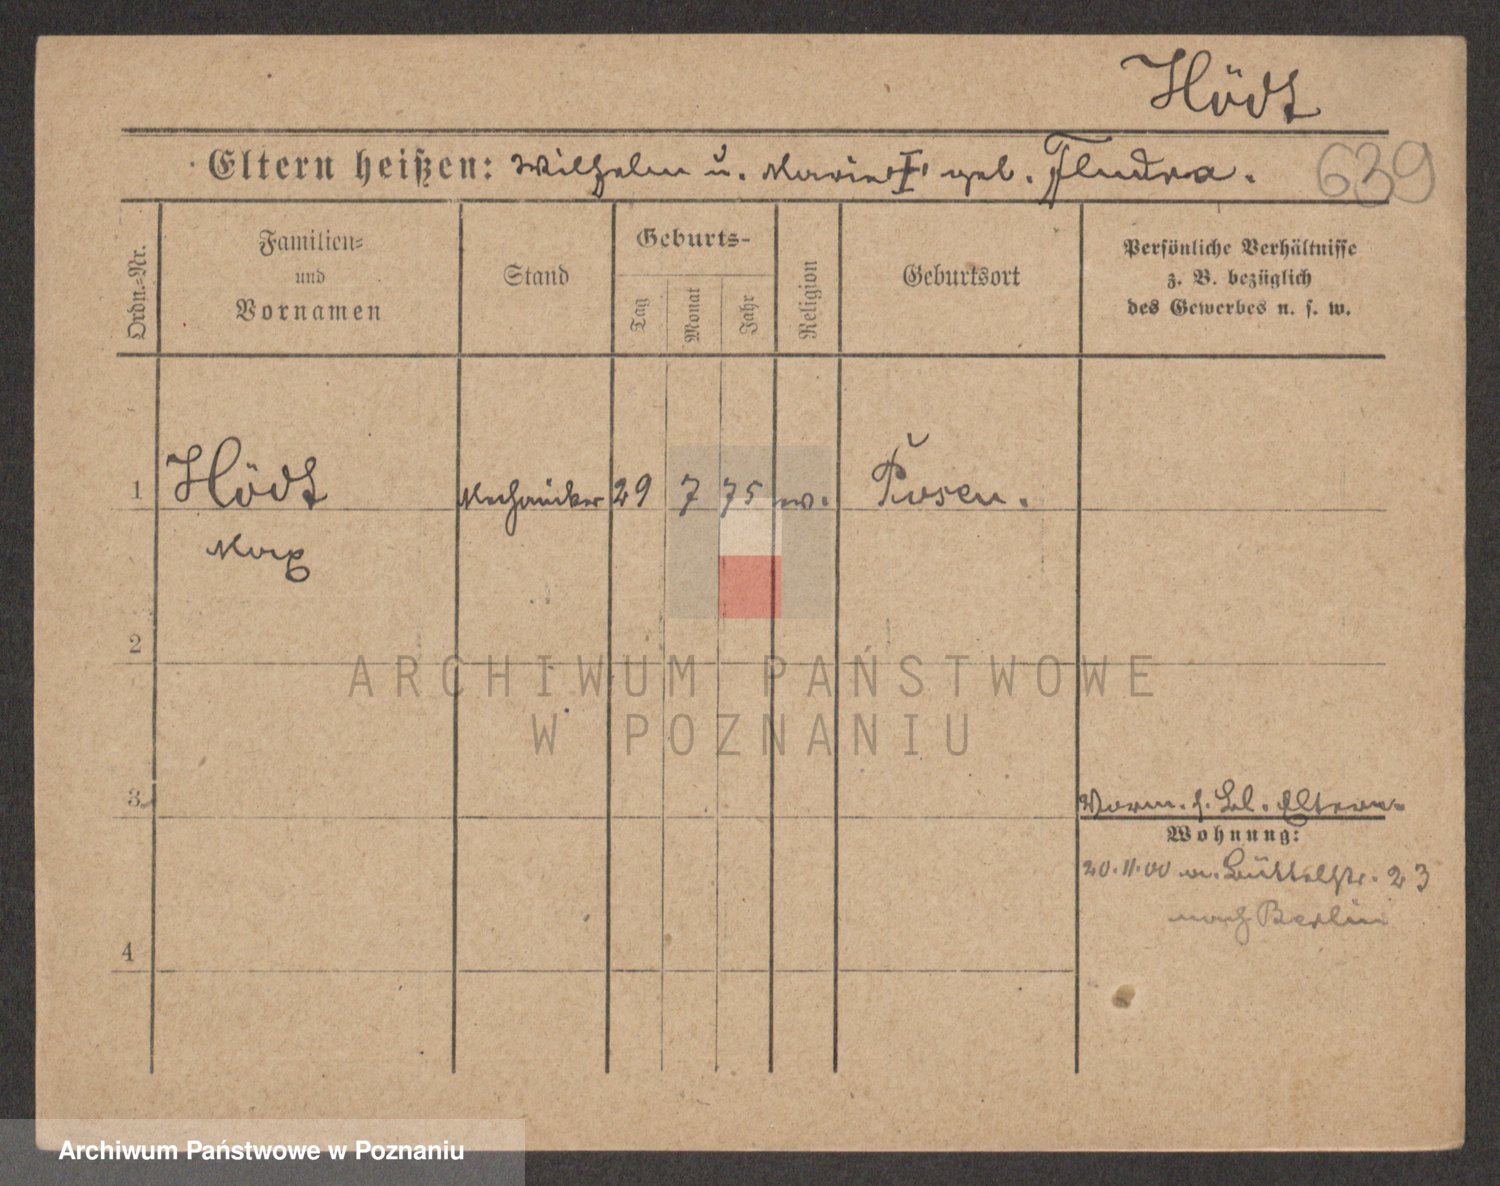 Hödt
Eltern heißen: Wilhelm u. Marie geb. Fludra.
639
Ordn.-Nr.
Familien-
und
Vornamen
Stand
Geburts-
Tag
Monat
Jahr
Religion
Geburtsort
Persönliche Verhältnisse
z. B. bezüglich
des Gewerbes u. s. w.
1
Hödt
Mechaniker
29
7
75
ev.
Posen.
Max
2
ARCHIWUM PAŃSTWOWE
W POZNANIU
3
Vorm. s. Bl. Eltern.
Wohnung:
20.11.00 v. Büttelstr. 23
nach Berlin
4
Archiwum Państwowe w Poznaniu